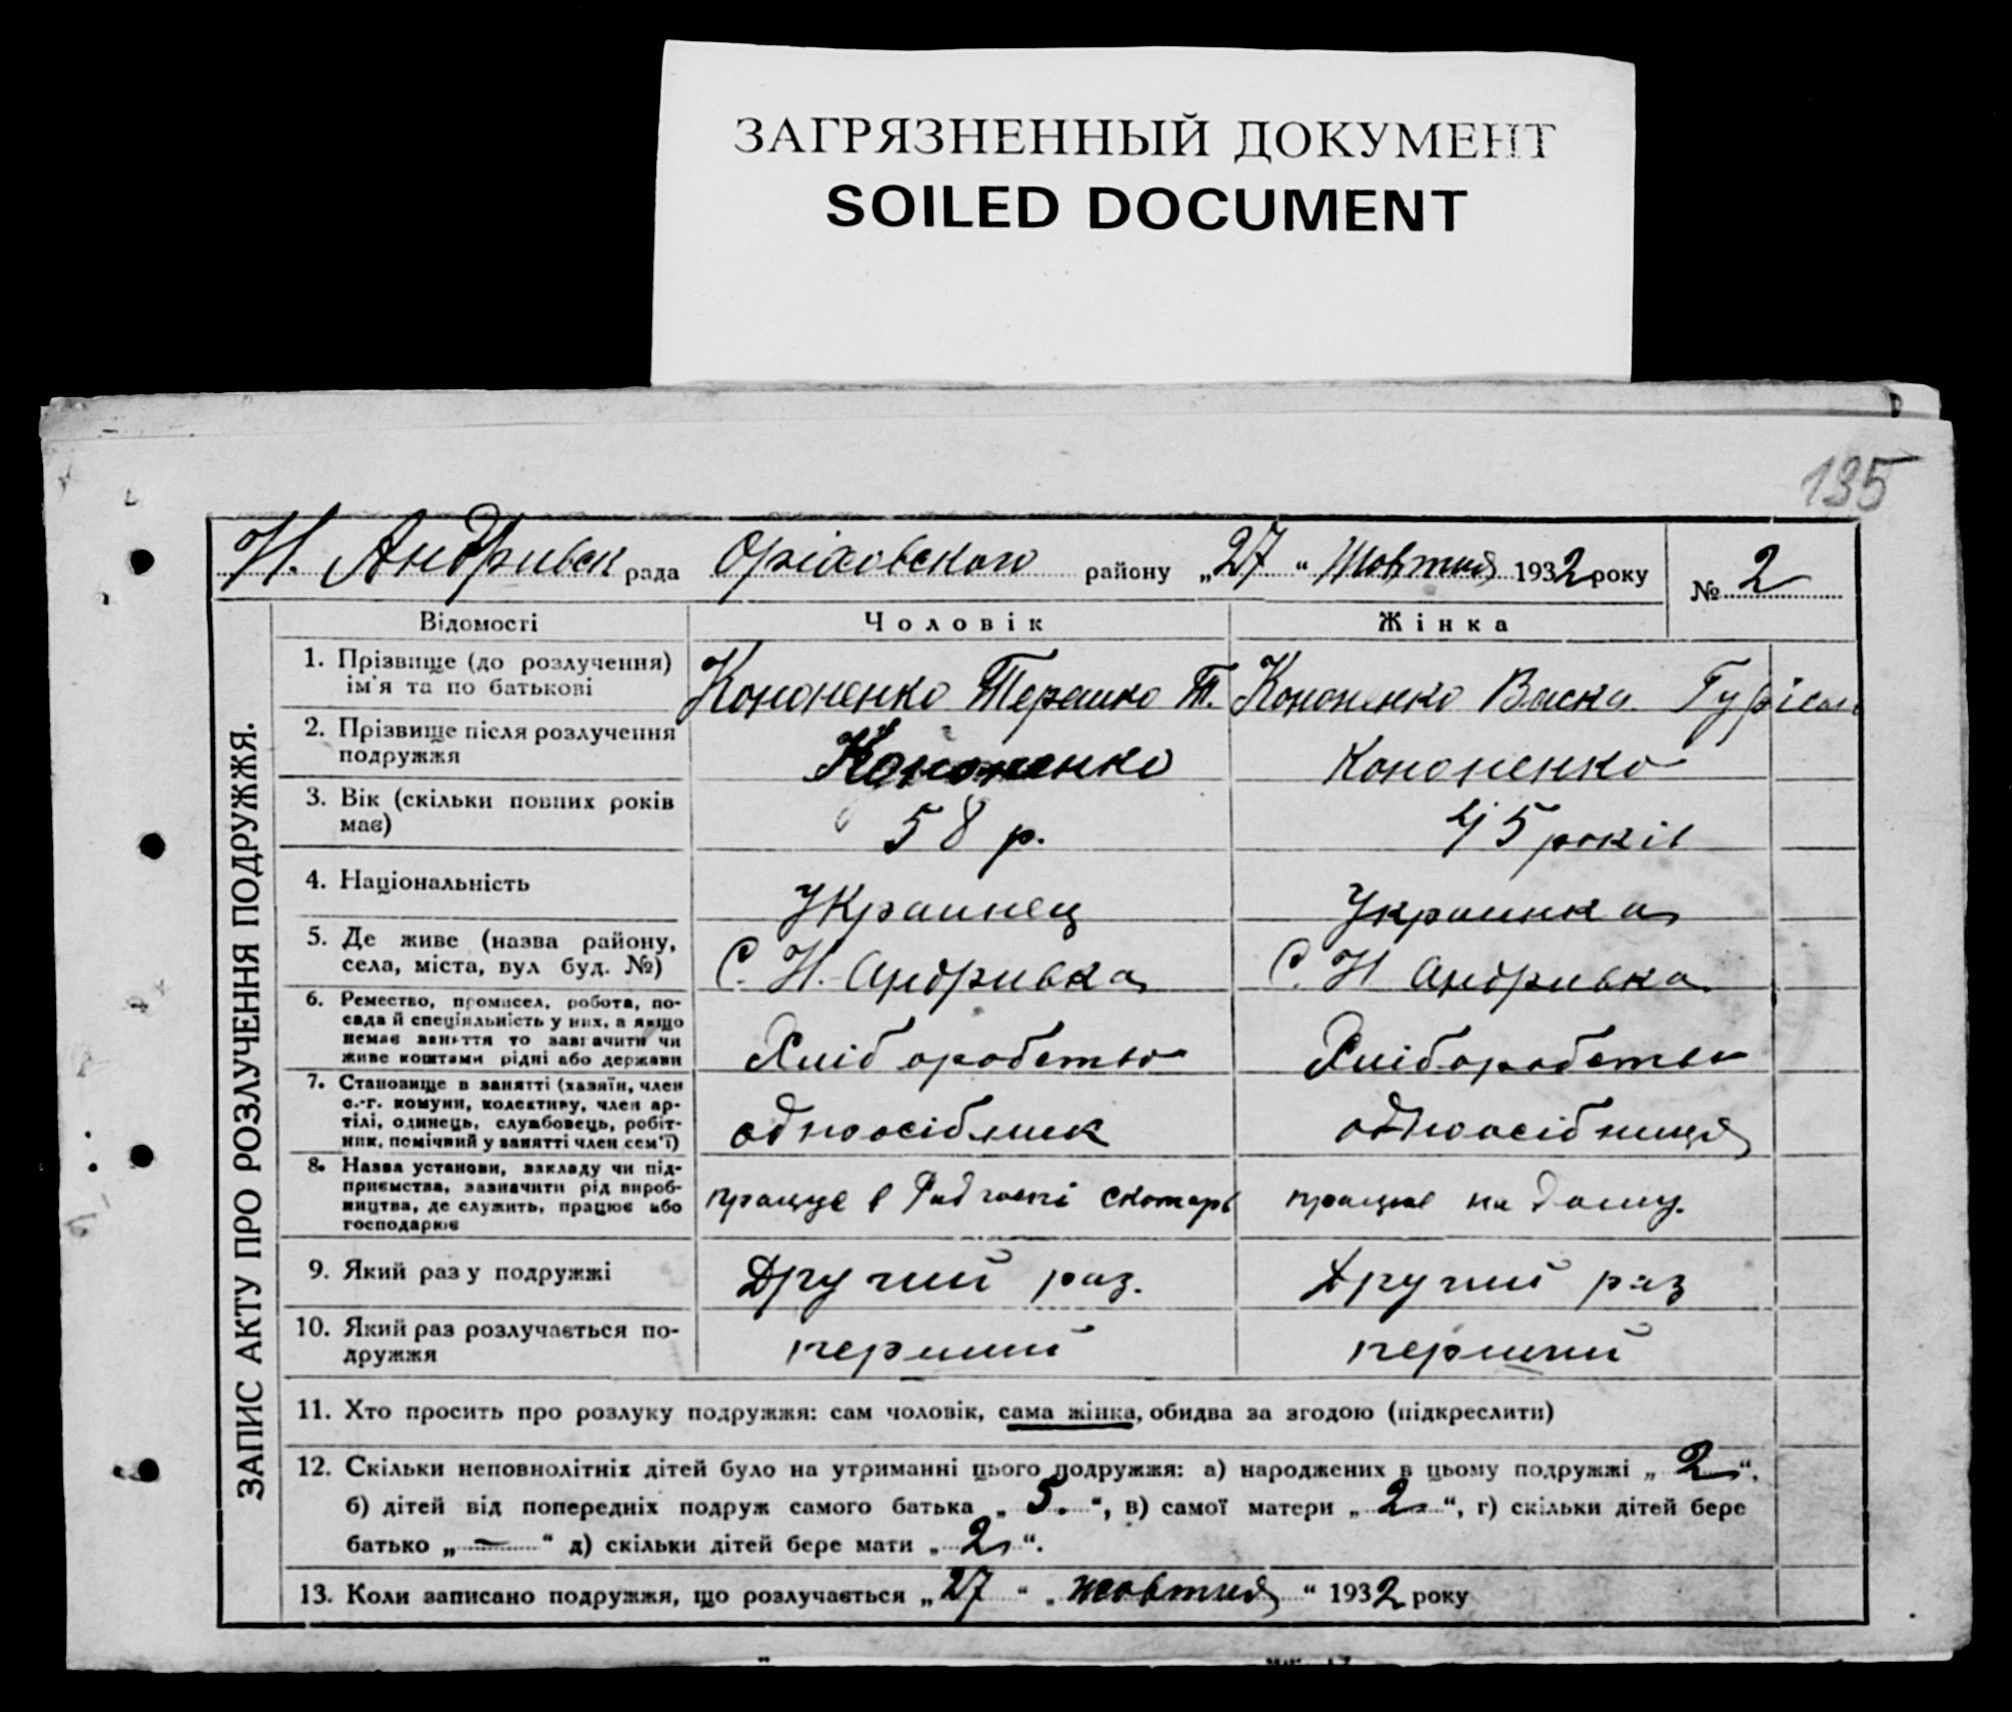 ЗАГРЯЗНЕННЫЙ ДОКУМЕНТ
SOILED DOCUMENT
135
Н. Андривск рада Оріховського району „27“ Жовтня 1932 року № 2
ЗАПИС АКТУ ПРО РОЗЛУЧЕННЯ ПОДРУЖЖЯ.
Відомості Чоловік Жінка
1. Прізвище (до розлучення) ім'я та по батькові Кононенко Терешко Т. Кононенко
2. Прізвище після розлучення подружжя Кононенко Кононенко
3. Вік (скільки повних років має) 58 р. 45 років
4. Національність Украинец Украинка
5. Де живе (назва району, села, міста, вул буд. №) С. Н. Андривка С. Н Андривка
6. Ремество, промисел, робота, посада й спеціяльність у них, а якщо немає заняття то зазначити чи живе коштами рідні або держави Хліборобство Хліборобство
7. Становище в занятті (хазяїн, член с.-г. комуни, колективу, член артілі, одинець, службовець, робітник, помічний у занятті член сем'ї) одноосібник одноосібниця
8. Назва установи, закладу чи підприємства, зазначити рід виробництва, де служить, працює або господарює працує в Радгоспі скотарь працює на дому.
9. Який раз у подружжі Другий раз. Другий раз
10. Який раз розлучається подружжя перший перший
11. Хто просить про розлуку подружжя: сам чоловік, сама жінка, обидва за згодою (підкреслити)
12. Скільки неповнолітніх дітей було на утриманні цього подружжя: а) народжених в цьому подружжі „2“,
б) дітей від попередніх подруж самого батька „5.“, в) самої матери „2.“, г) скільки дітей бере
батько „—“ д) скільки дітей бере мати „2“.
13. Коли записано подружжя, що розлучається „27“ „жовтня“ 1932 року